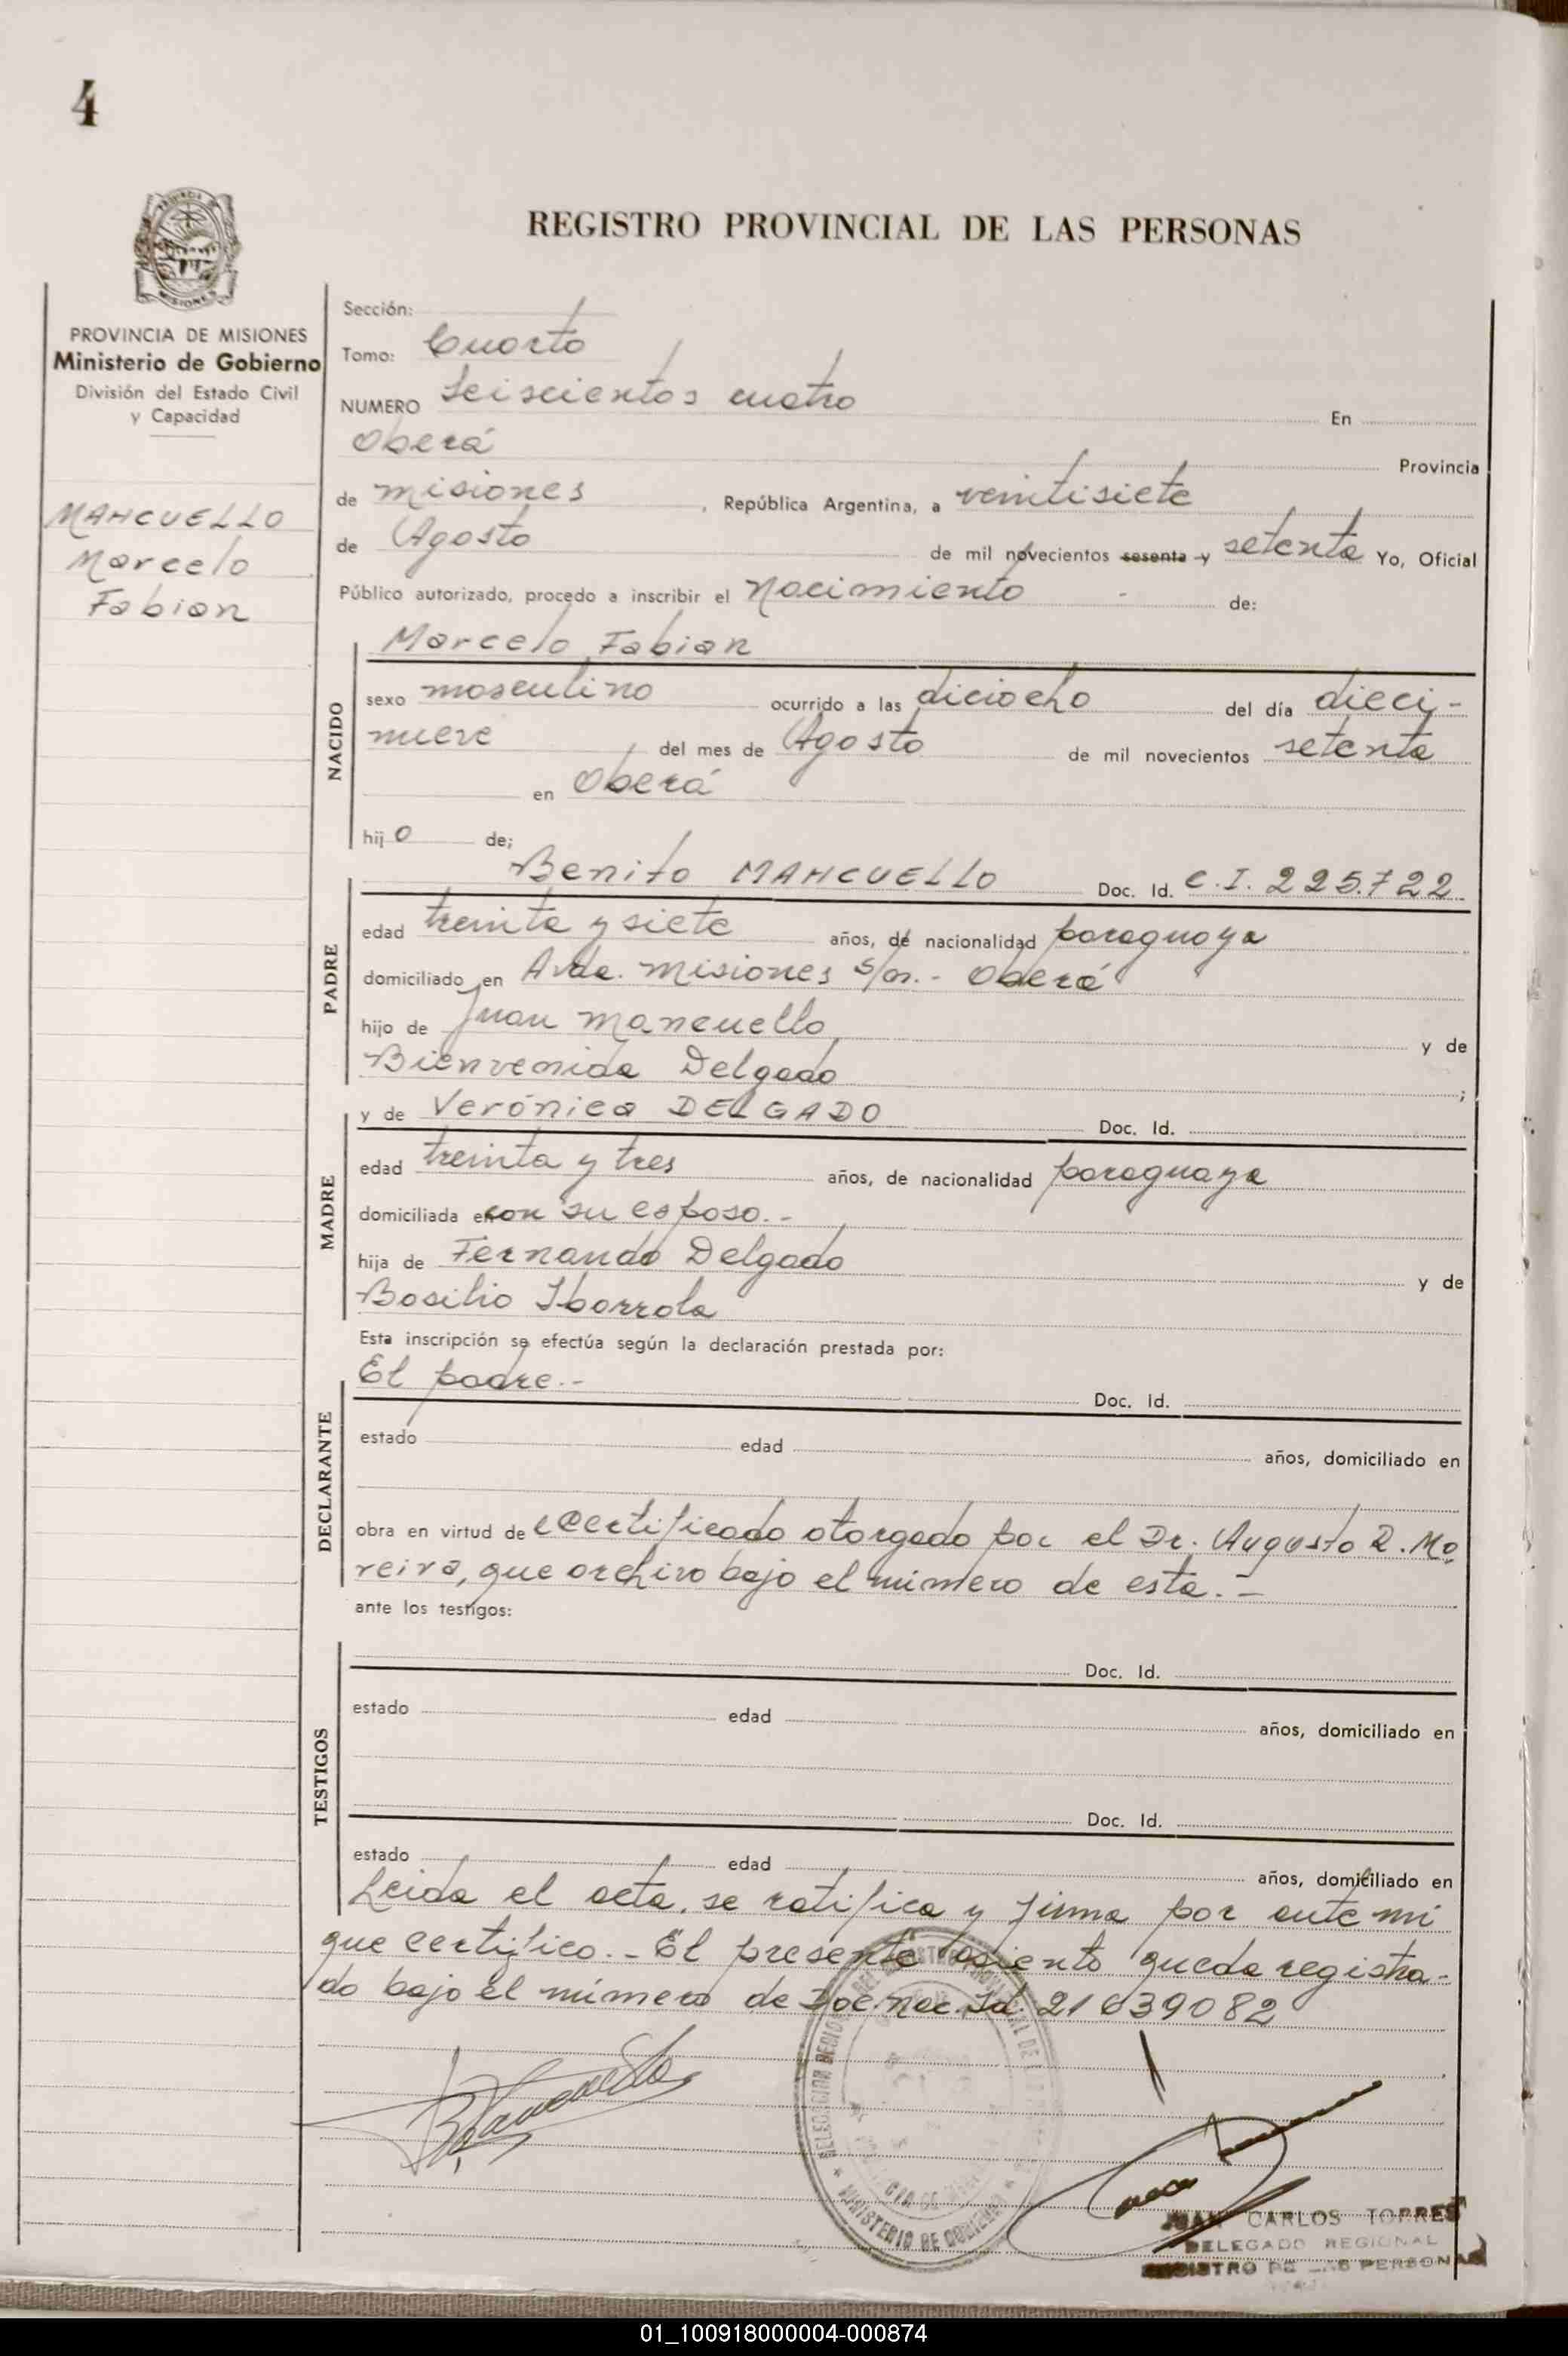 4
REGISTRO PROVINCIAL DE LAS PERSONAS
PROVINCIA DE MISIONES
Ministerio de Gobierno
División del Estado Civil
y Capacidad
MANCUELLO
Marcelo
Fabian
Sección:
Tomo: Cuarto
NUMERO Seiscientos cuatro En
Oberá Provincia
de Misiones, República Argentina, a veintisiete
de Agosto de mil novecientos sesenta y setenta Yo, Oficial
Público autorizado, procedo a inscribir el Nacimiento - de:
Marcelo Fabian
NACIDO
sexo masculino ocurrido a las dieciocho del día dieci-
nueve del mes de Agosto de mil novecientos setenta
en Oberá
hijo de;
Benito MANCUELLO Doc. Id. C.I. 225.722
PADRE
edad treinta y siete años, de nacionalidad paraguaya
domiciliado en Avda. Misiones s/n.- Oberá
hijo de Juan Mancuello y de
Bienvenida Delgado ;
y de Verónica DELGADO Doc. Id.
MADRE
edad treinta y tres años, de nacionalidad paraguaya
domiciliada en con su esposo.-
hija de Fernando Delgado y de
Basilio Iborrola
Esta inscripción se efectúa según la declaración prestada por:
El padre.- Doc. Id.
DECLARANTE
estado edad años, domiciliado en
obra en virtud de certificado otorgado por el Dr. Augusto R. Mo
reira, que archivo bajo el número de esta.-
ante los testigos:
Doc. Id.
TESTIGOS
estado edad años, domiciliado en
Doc. Id.
estado edad años, domiciliado en
Leida el acta, se ratifica y firma por ante mi
que certifico.- El presente asiento queda registra-
do bajo el número de Doc. nac. Id. 21639082
MINISTERIO DE GOBIERNO
JUAN CARLOS TORRES
DELEGADO REGIONAL
REGISTRO DE LAS PERSONAS
01_100918000004-000874